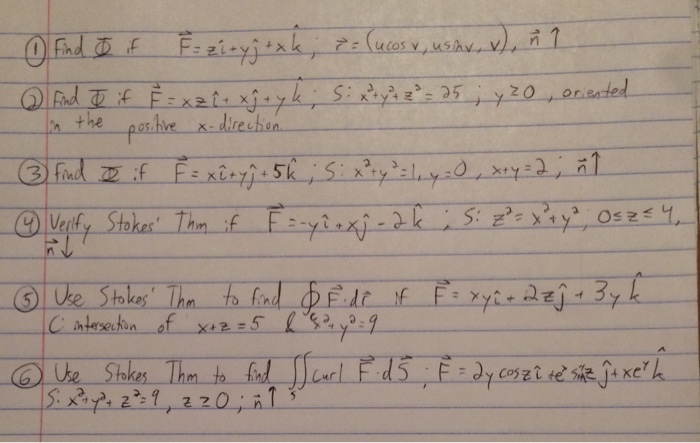 ① Find Φ if F⃗ = zî + yĵ + xk̂ ; r⃗ = (ucos v, usin v, v), n⃗ ↑
② Find Φ if F⃗ = xzî + xĵ + yk̂ ; S: x²+y²+z² = 25 ; y≥0, oriented
in the positive x-direction.
③ Find Φ if F⃗ = xî + yĵ + 5k̂ ; S: x²+y²=1, y=0, x+y=2 ; n⃗ ↑
④ Verify Stokes' Thm if F⃗ = -yî + xĵ - 2k̂ ; S: z² = x²+y², 0≤z≤4,
n⃗ ↓
⑤ Use Stokes' Thm to find ∮ F⃗·dr⃗ if F⃗ = xyî + 2zĵ + 3yk̂
C intersection of x+z=5 & x²+y²=9
⑥ Use Stokes Thm to find ∬ₛ curl F⃗·dS⃗ ; F⃗ = 2y cosz î + eˣ sinz ĵ + xeʸ k̂
S: x²+y²+z²=9, z≥0 ; n⃗ ↑